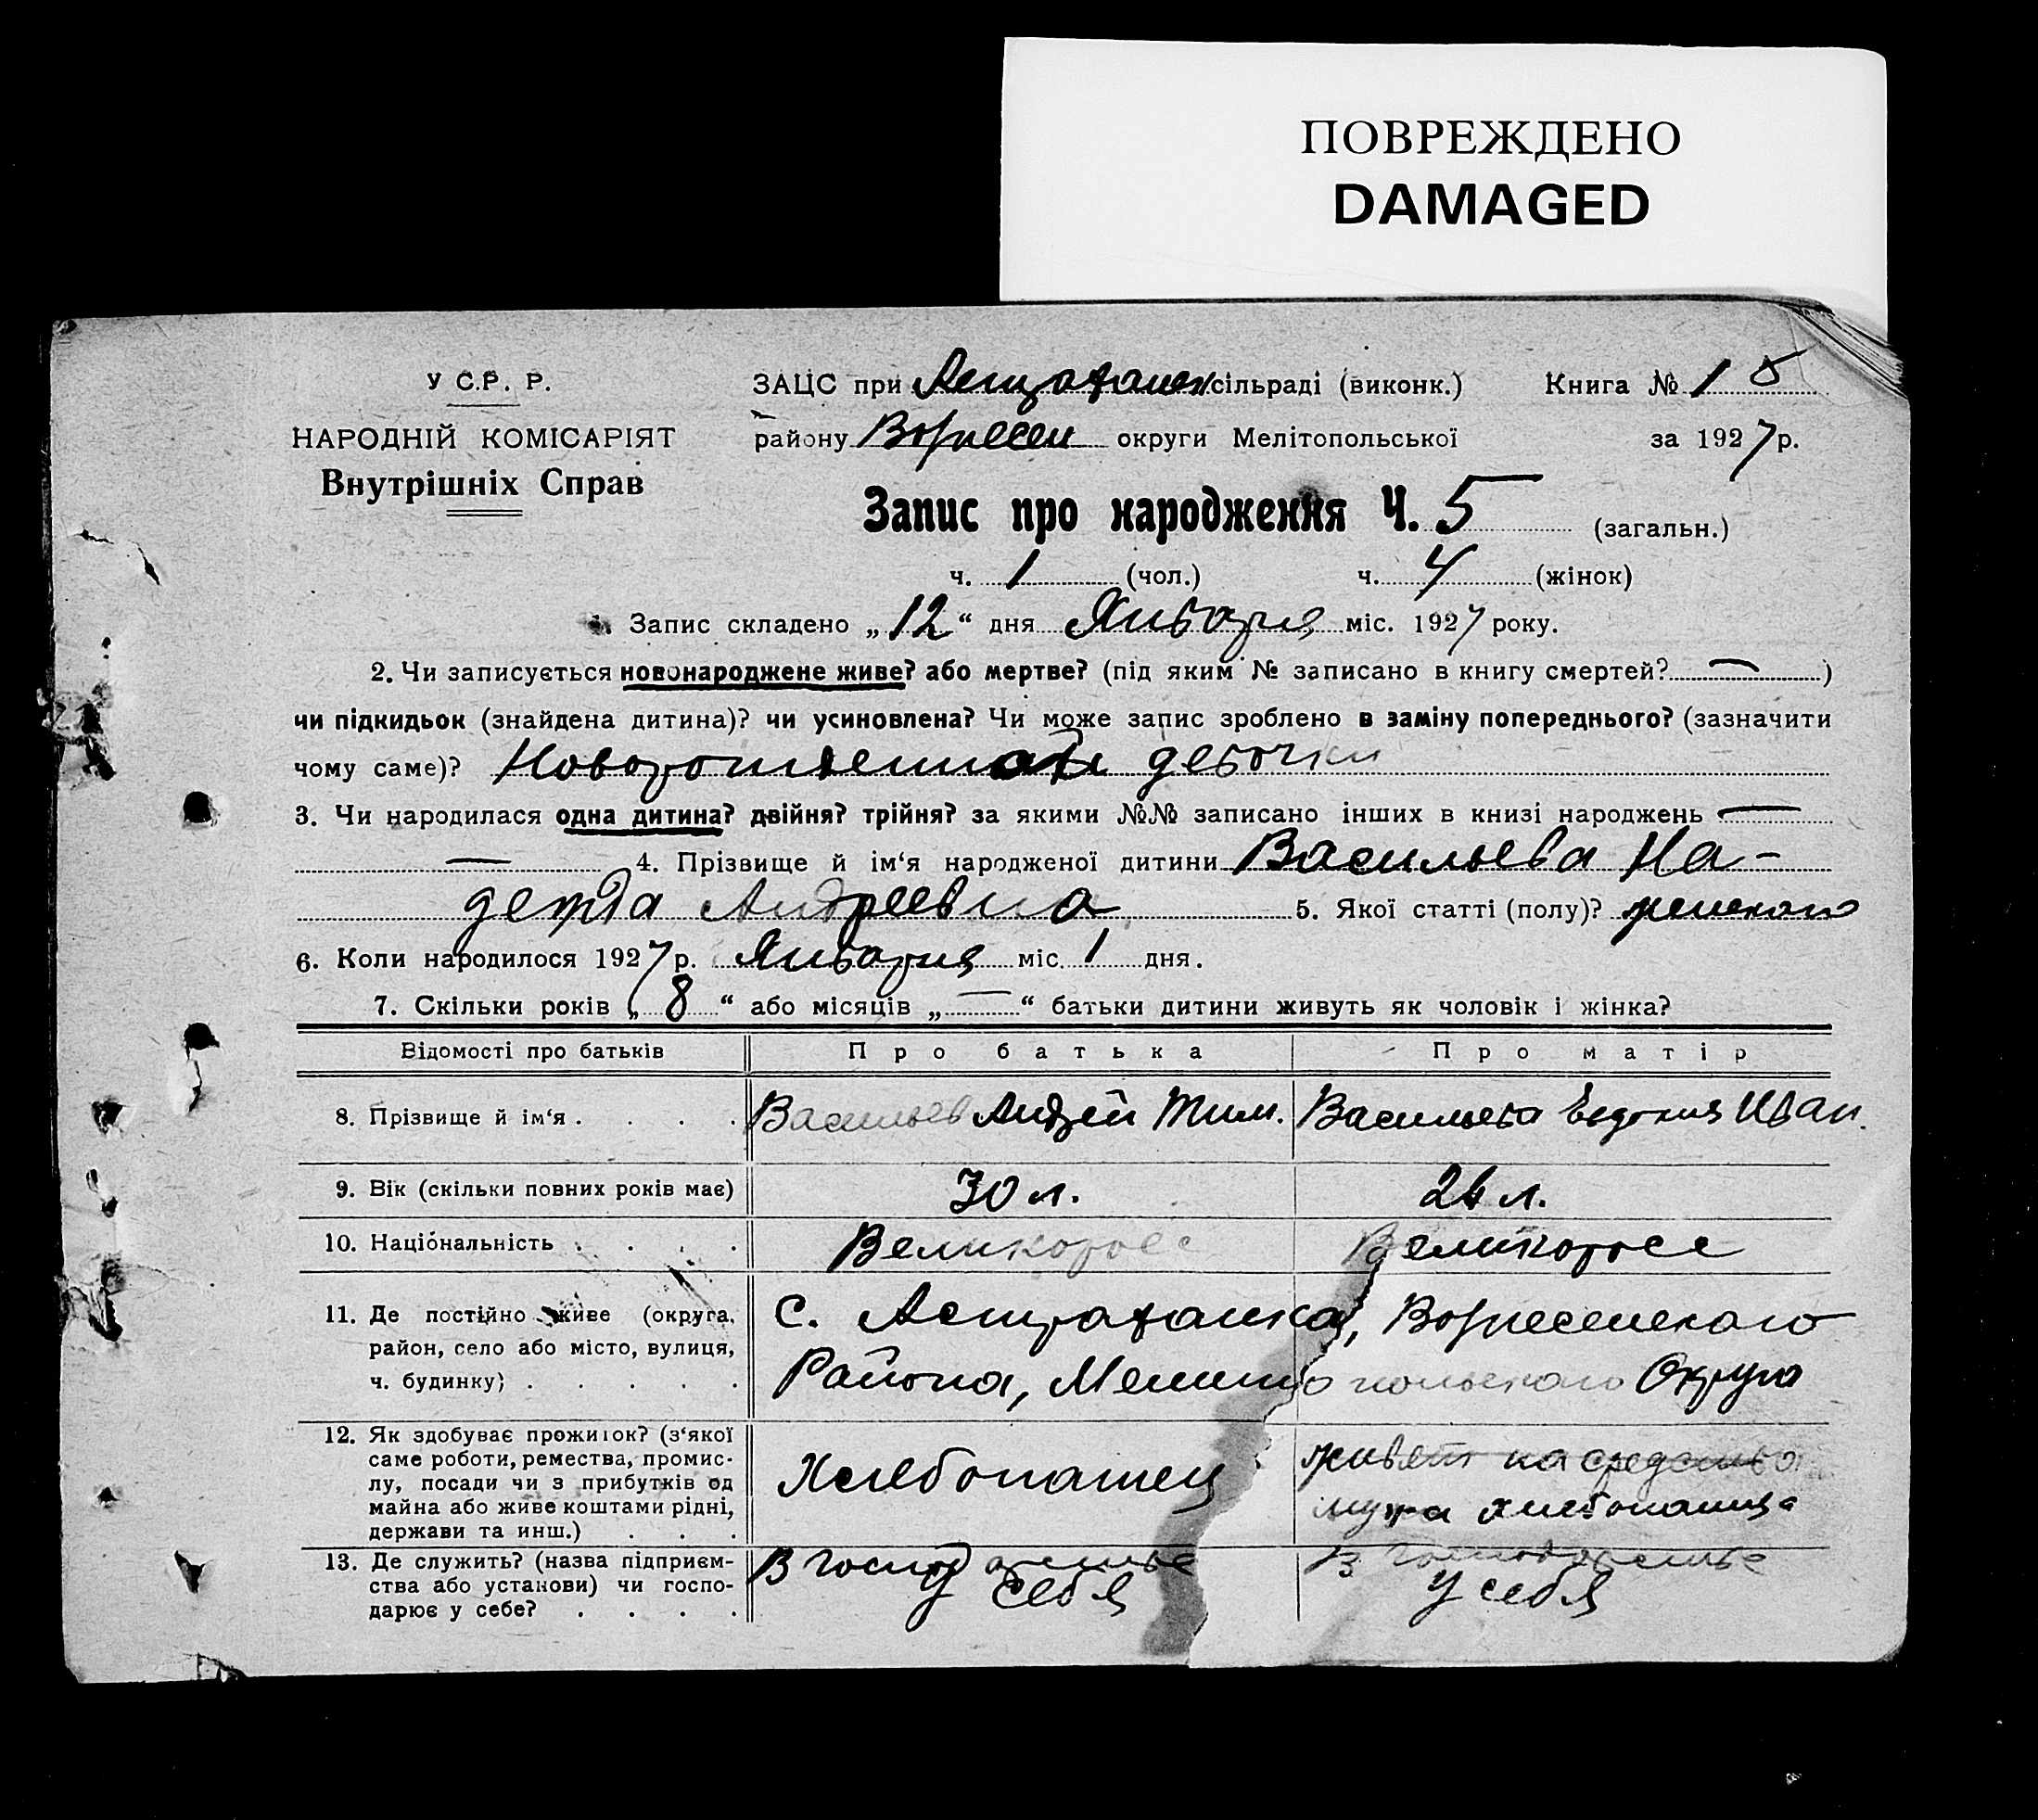 ПОВРЕЖДЕНО
DAMAGED
У С.Р. Р.
ЗАЦС при Астраханск сільраді (виконк.) Книга № 1
НАРОДНІЙ КОМІСАРІЯТ
району Вознесен округи Мелітопольської за 1927 р.
Внутрішніх Справ
Запис про народження Ч. 5 (загальн.)
ч. 1 (чол.) ч. 4 (жінок)
Запис складено „12“ дня Января міс. 1927 року.
2. Чи записується новонароджене живе? або мертве? (під яким № записано в книгу смертей? — )
чи підкидьок (знайдена дитина)? чи усиновлена? Чи може запис зроблено в заміну попереднього? (зазначити
чому саме)? девочки
3. Чи народилася одна дитина? двійня? трійня? за якими №№ записано інших в книзі народжень —
— 4. Прізвище й ім‘я народженої дитини Васильева На-
дежда Андреевна 5. Якої статті (полу)? женского
6. Коли народилося 1927 р. Января міс. 1 дня.
7. Скільки років „ 8 “ або місяців „ — “ батьки дитини живуть як чоловік і жінка?
Відомості про батьків Про батька Про матір
8. Прізвище й ім‘я . . . . Васильев Андрей Тим. Васильева Евдокия Иван.
9. Вік (скільки повних років має) 30 л. 26 л.
10. Національність . . . . Великоросс Великоросс
11. Де постійно живе (округа, с. Астраханка, Вознесенского
район, село або місто, вулиця, Района, Мелитопольского Округа
ч. будинку) . . . . .
12. Як здобуває прожиток? (з‘якої
саме роботи, ремества, промис- живет на средства
лу, посади чи з прибутків од Хлебопашец
майна або живе коштами рідні, мужа хлебопашца
держави та инш.) . . .
13. Де служить? (назва підприєм- В господарстве В господарстве
ства або установи) чи госпо- у себя у себя
дарює у себе? . . . .